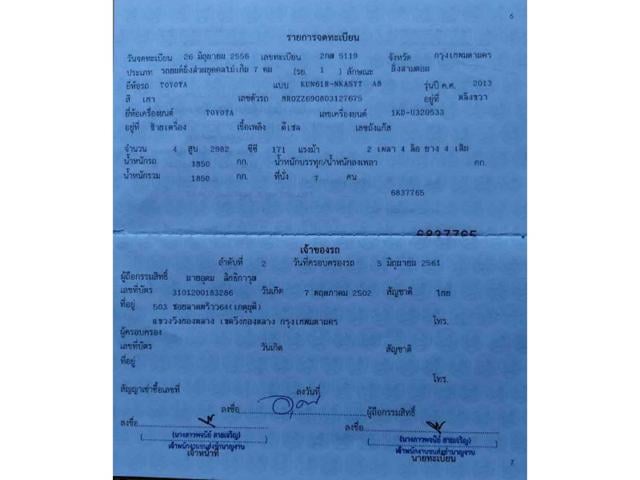 6
รายการจดทะเบียน
วันจดทะเบียน 26 มิถุนายน 2556 เลขทะเบียน 2กศ 5119 จังหวัด กรุงเทพมหานคร
ประเภท รถยนต์นั่งส่วนบุคคลไม่เกิน 7 คน (รย. 1 ) ลักษณะ นั่งสามตอน
ยี่ห้อรถ TOYOTA แบบ KUN61R-NKASYT A8 รุ่นปี ค.ศ. 2013
สี เทา เลขตัวรถ MR0ZZ69G803127675 อยู่ที่ ตลิ่งขวา
ยี่ห้อเครื่องยนต์ TOYOTA เลขเครื่องยนต์ 1KD-U320533
อยู่ที่ ซ้ายเครื่อง เชื้อเพลิง ดีเซล เลขถังแก๊ส
จำนวน 4 สูบ 2982 ซีซี 171 แรงม้า 2 เพลา 4 ล้อ ยาง 4 เส้น
น้ำหนักรถ 1850 กก. น้ำหนักบรรทุก/น้ำหนักลงเพลา กก.
น้ำหนักรวม 1850 กก. ที่นั่ง 7 คน
6837765
6837765
เจ้าของรถ
ลำดับที่ 2 วันที่ครอบครองรถ 5 มิถุนายน 2561
ผู้ถือกรรมสิทธิ์ นายอุดม
เลขที่บัตร 3101200183286 วันเกิด 7 พฤษภาคม 2502 สัญชาติ ไทย
ที่อยู่ 503 ซอยลาดพร้าว64(เกตุนุติ)
แขวงวังทองหลาง เขตวังทองหลาง กรุงเทพมหานคร โทร.
ผู้ครอบครอง
เลขที่บัตร วันเกิด สัญชาติ
ที่อยู่
โทร.
สัญญาเช่าซื้อเลขที่ ลงวันที่
ลงชื่อ ผู้ถือกรรมสิทธิ์
ลงชื่อ
(นางสาวพจนีย์ สายเจริญ) (นางสาวพจนีย์ สายเจริญ)
เจ้าพนักงานขนส่งชำนาญงาน เจ้าพนักงานขนส่งชำนาญงาน
เจ้าหน้าที่ นายทะเบียน
7